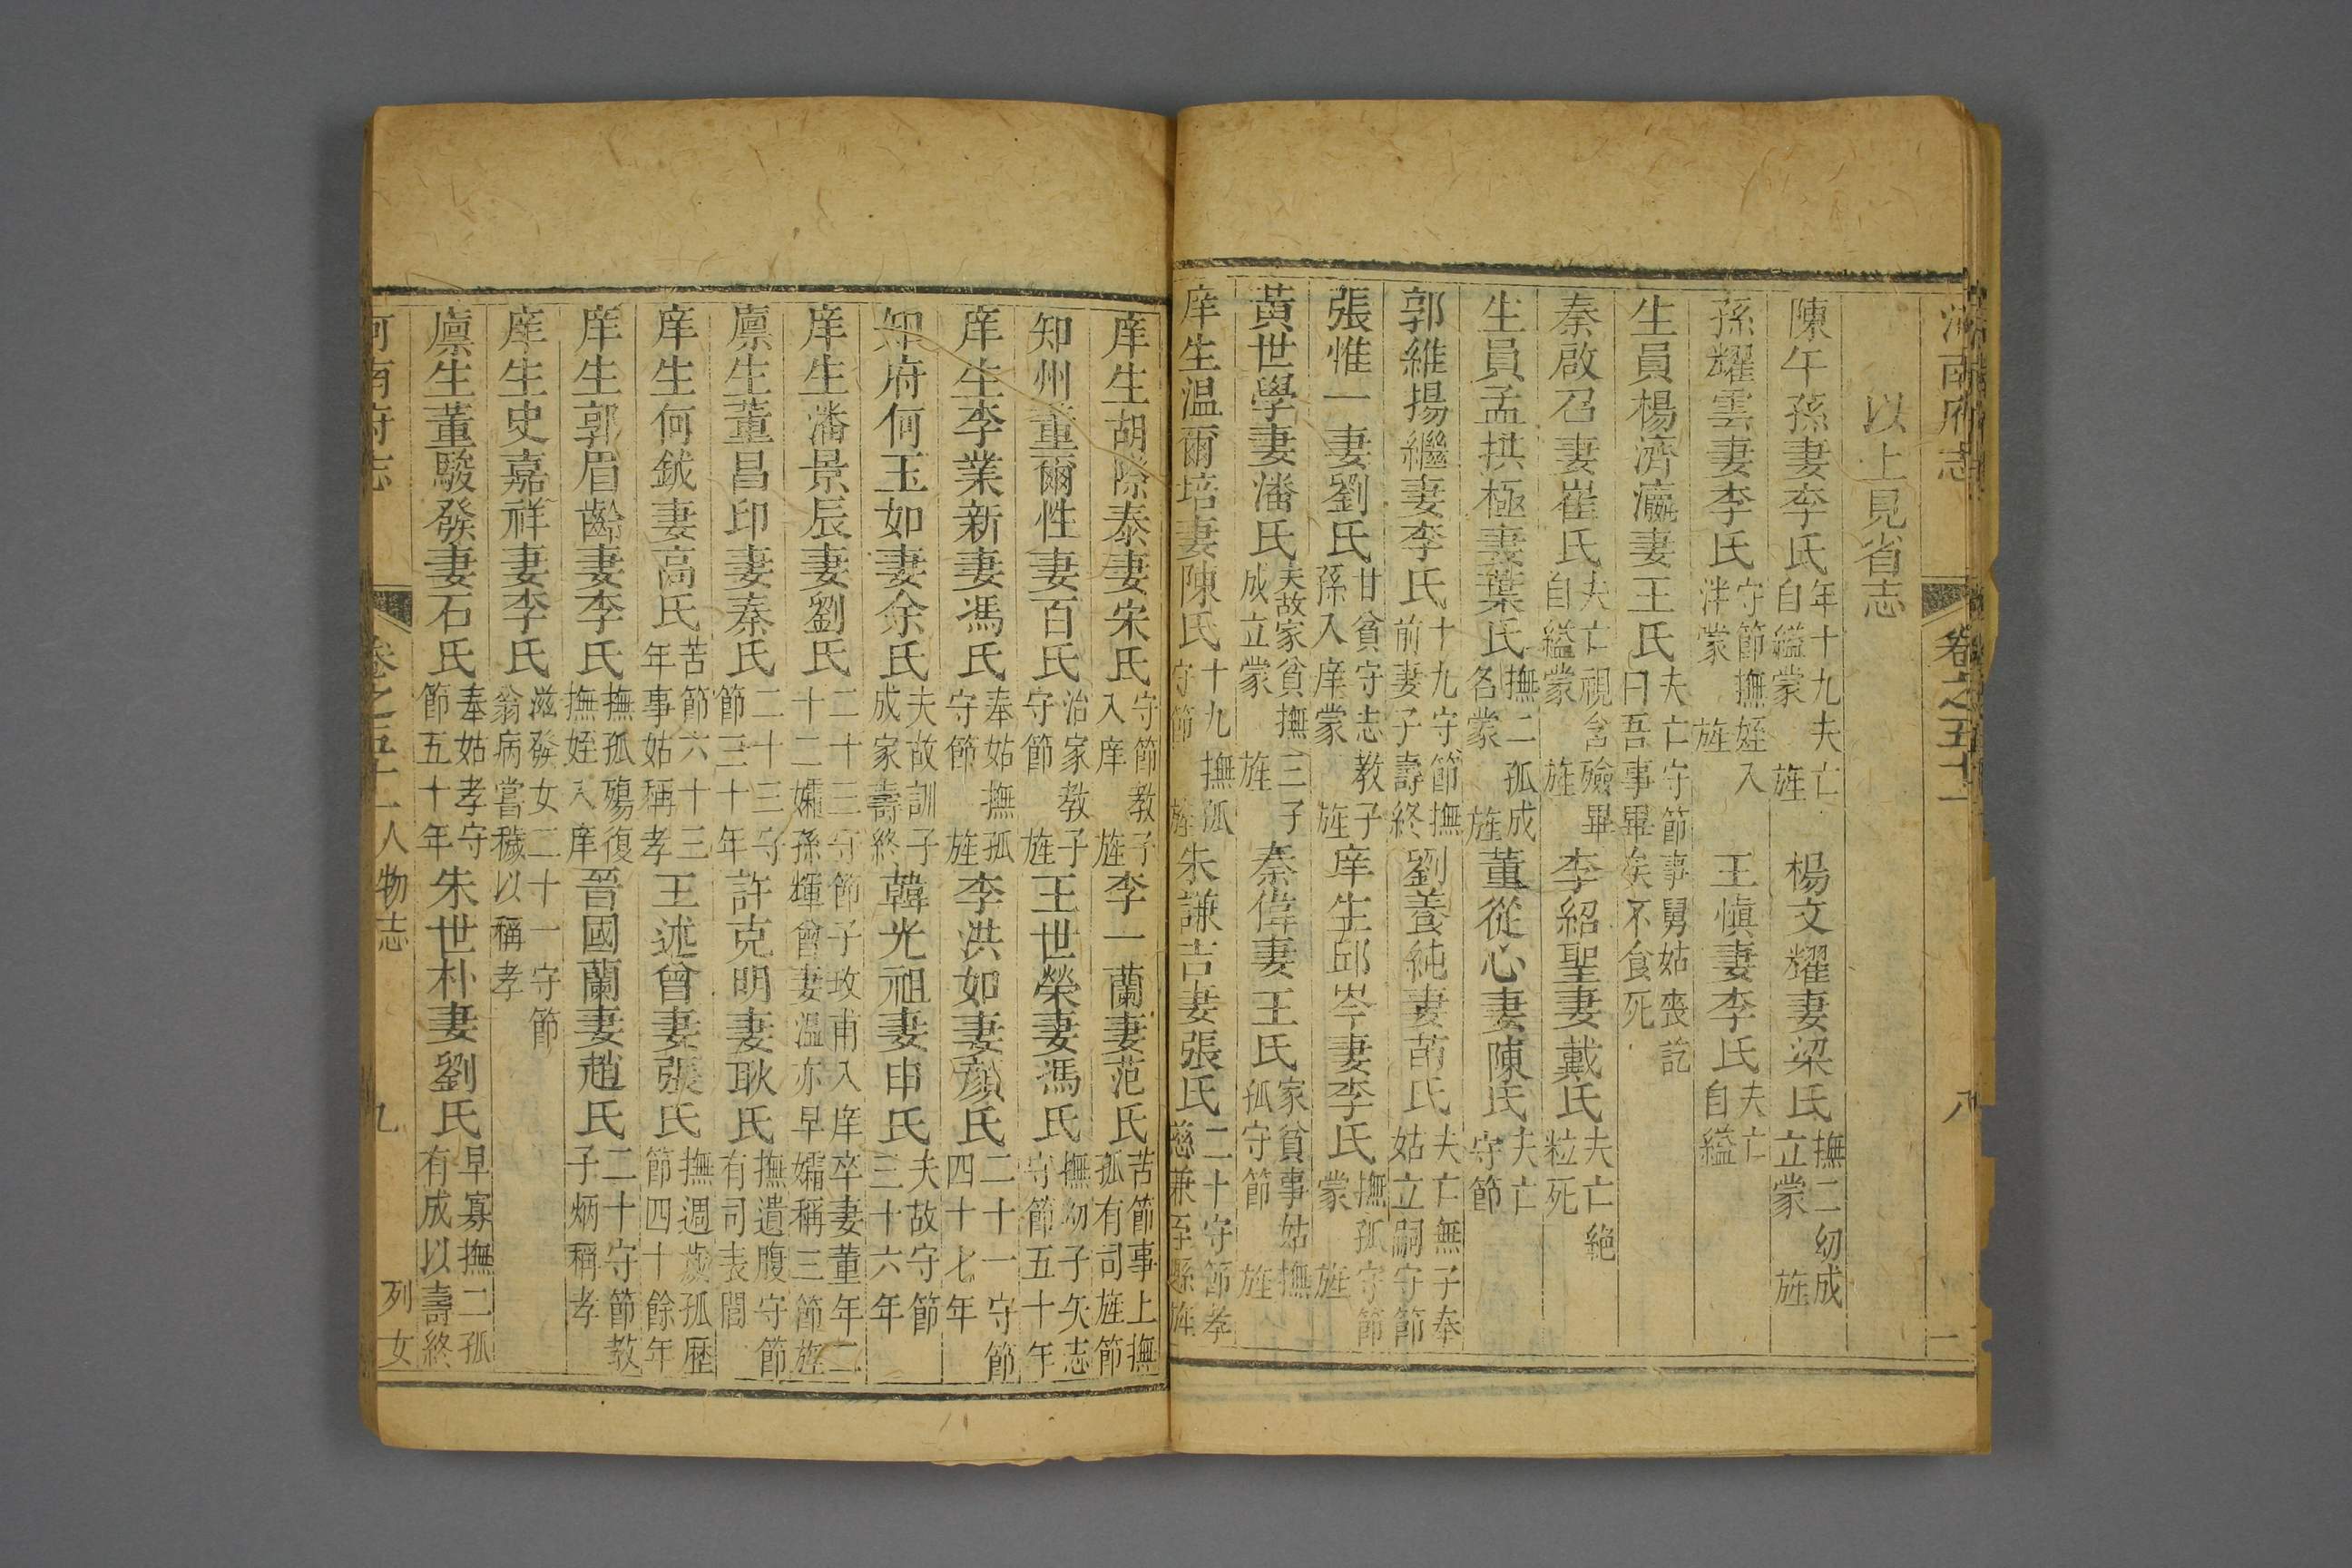 河南府志 卷之五十一 八
以上見省志
陳午孫妻李氏年十九夫亡自縊蒙旌 楊文耀妻梁氏撫二幼成立蒙旌
孫耀雲妻李氏守節撫姪入泮蒙旌 王愼妻李氏夫亡自縊
生員楊濟瀛妻王氏夫亡守節事舅姑喪訖曰吾事畢矣不食死
秦啟召妻崔氏夫亡視含殮畢自縊蒙旌 李紹聖妻戴氏夫亡絕粒死
生員孟拱極妻葉氏撫二孤成名蒙旌 董從心妻陳氏夫亡守節
郭維揚繼妻李氏十九守節撫前妻子壽終 劉養純妻苗氏夫亡無子奉姑立嗣守節
張惟一妻劉氏甘貧守志教子孫入庠蒙旌 庠生邱岑妻李氏撫孤守節蒙旌
黃世學妻潘氏夫故家貧撫三子成立蒙旌 秦偉妻王氏家貧事姑撫孤守節旌
庠生溫爾培妻陳氏十九撫孤守節旌 朱謙吉妻張氏二十守節孝慈兼至縣旌
庠生胡際泰妻宋氏守節教子入庠旌 李一蘭妻范氏苦節事上撫孤有司旌節
知州董爾性妻百氏治家教子守節旌 王世榮妻馮氏撫幼子矢志守節五十年
庠生李業新妻馮氏奉姑撫孤守節旌 李洪如妻顏氏二十一守節四十七年
知府何玉如妻余氏夫故訓子成家壽終 韓光祖妻申氏夫故守節三十六年
庠生潘景辰妻劉氏二十三守節子玫甫入庠卒妻董年二十二孀孫輝曾妻溫亦早孀稱三節旌
廩生董昌印妻秦氏二十三守節三十年 許克明妻耿氏撫遺腹守節有司表閭
庠生何鉞妻高氏苦節六十三年事姑稱孝 王述曾妻張氏撫週歲孤歷節四十餘年
庠生郭眉齡妻李氏撫孤殤復撫姪入庠 晉國蘭妻趙氏二十守節教子炳稱孝
庠生史嘉祥妻李氏滋發女二十一守節翁病嘗穢以稱孝
廩生董駿發妻石氏奉姑孝守節五十年 朱世朴妻劉氏早寡撫二孤有成以壽終
河南府志 卷之五十一 人物志 九 列女